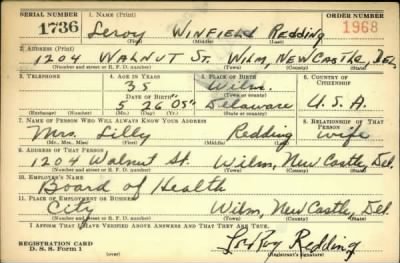 SERIAL NUMBER 1. NAME (Print) ORDER NUMBER
1736 Leroy WINFIELD Redding 1968
(First) (Middle) (Last)
2. ADDRESS (Print)
1204 WALNUT St. Wilm, NEW CAStle, DEL
(Number and street or R. F. D. number) (Town) (County) (State)
3. TELEPHONE 4. AGE IN YEARS 5. PLACE OF BIRTH 6. COUNTRY OF CITIZENSHIP
35 Wilm.
DATE OF BIRTH (Town or county)
5 26 05 Delaware U.S.A.
(Exchange) (Number) (Mo.) (Day) (Yr.) (State or country)
7. NAME OF PERSON WHO WILL ALWAYS KNOW YOUR ADDRESS 8. RELATIONSHIP OF THAT PERSON
Mrs. Lilly Redding wife
(Mr., Mrs., Miss) (First) (Middle) (Last)
9. ADDRESS OF THAT PERSON
1204 Walnut St. Wilm, New Castle, Del.
(Number and street or R. F. D. number) (Town) (County) (State)
10. EMPLOYER'S NAME
Board of Health
11. PLACE OF EMPLOYMENT OR BUSINESS
City Wilm, New Castle, Del.
(Number and street or R. F. D. number) (Town) (County) (State)
I AFFIRM THAT I HAVE VERIFIED ABOVE ANSWERS AND THAT THEY ARE TRUE.
REGISTRATION CARD LeRoy Redding
D. S. S. Form 1 (over) (Registrant's signature)